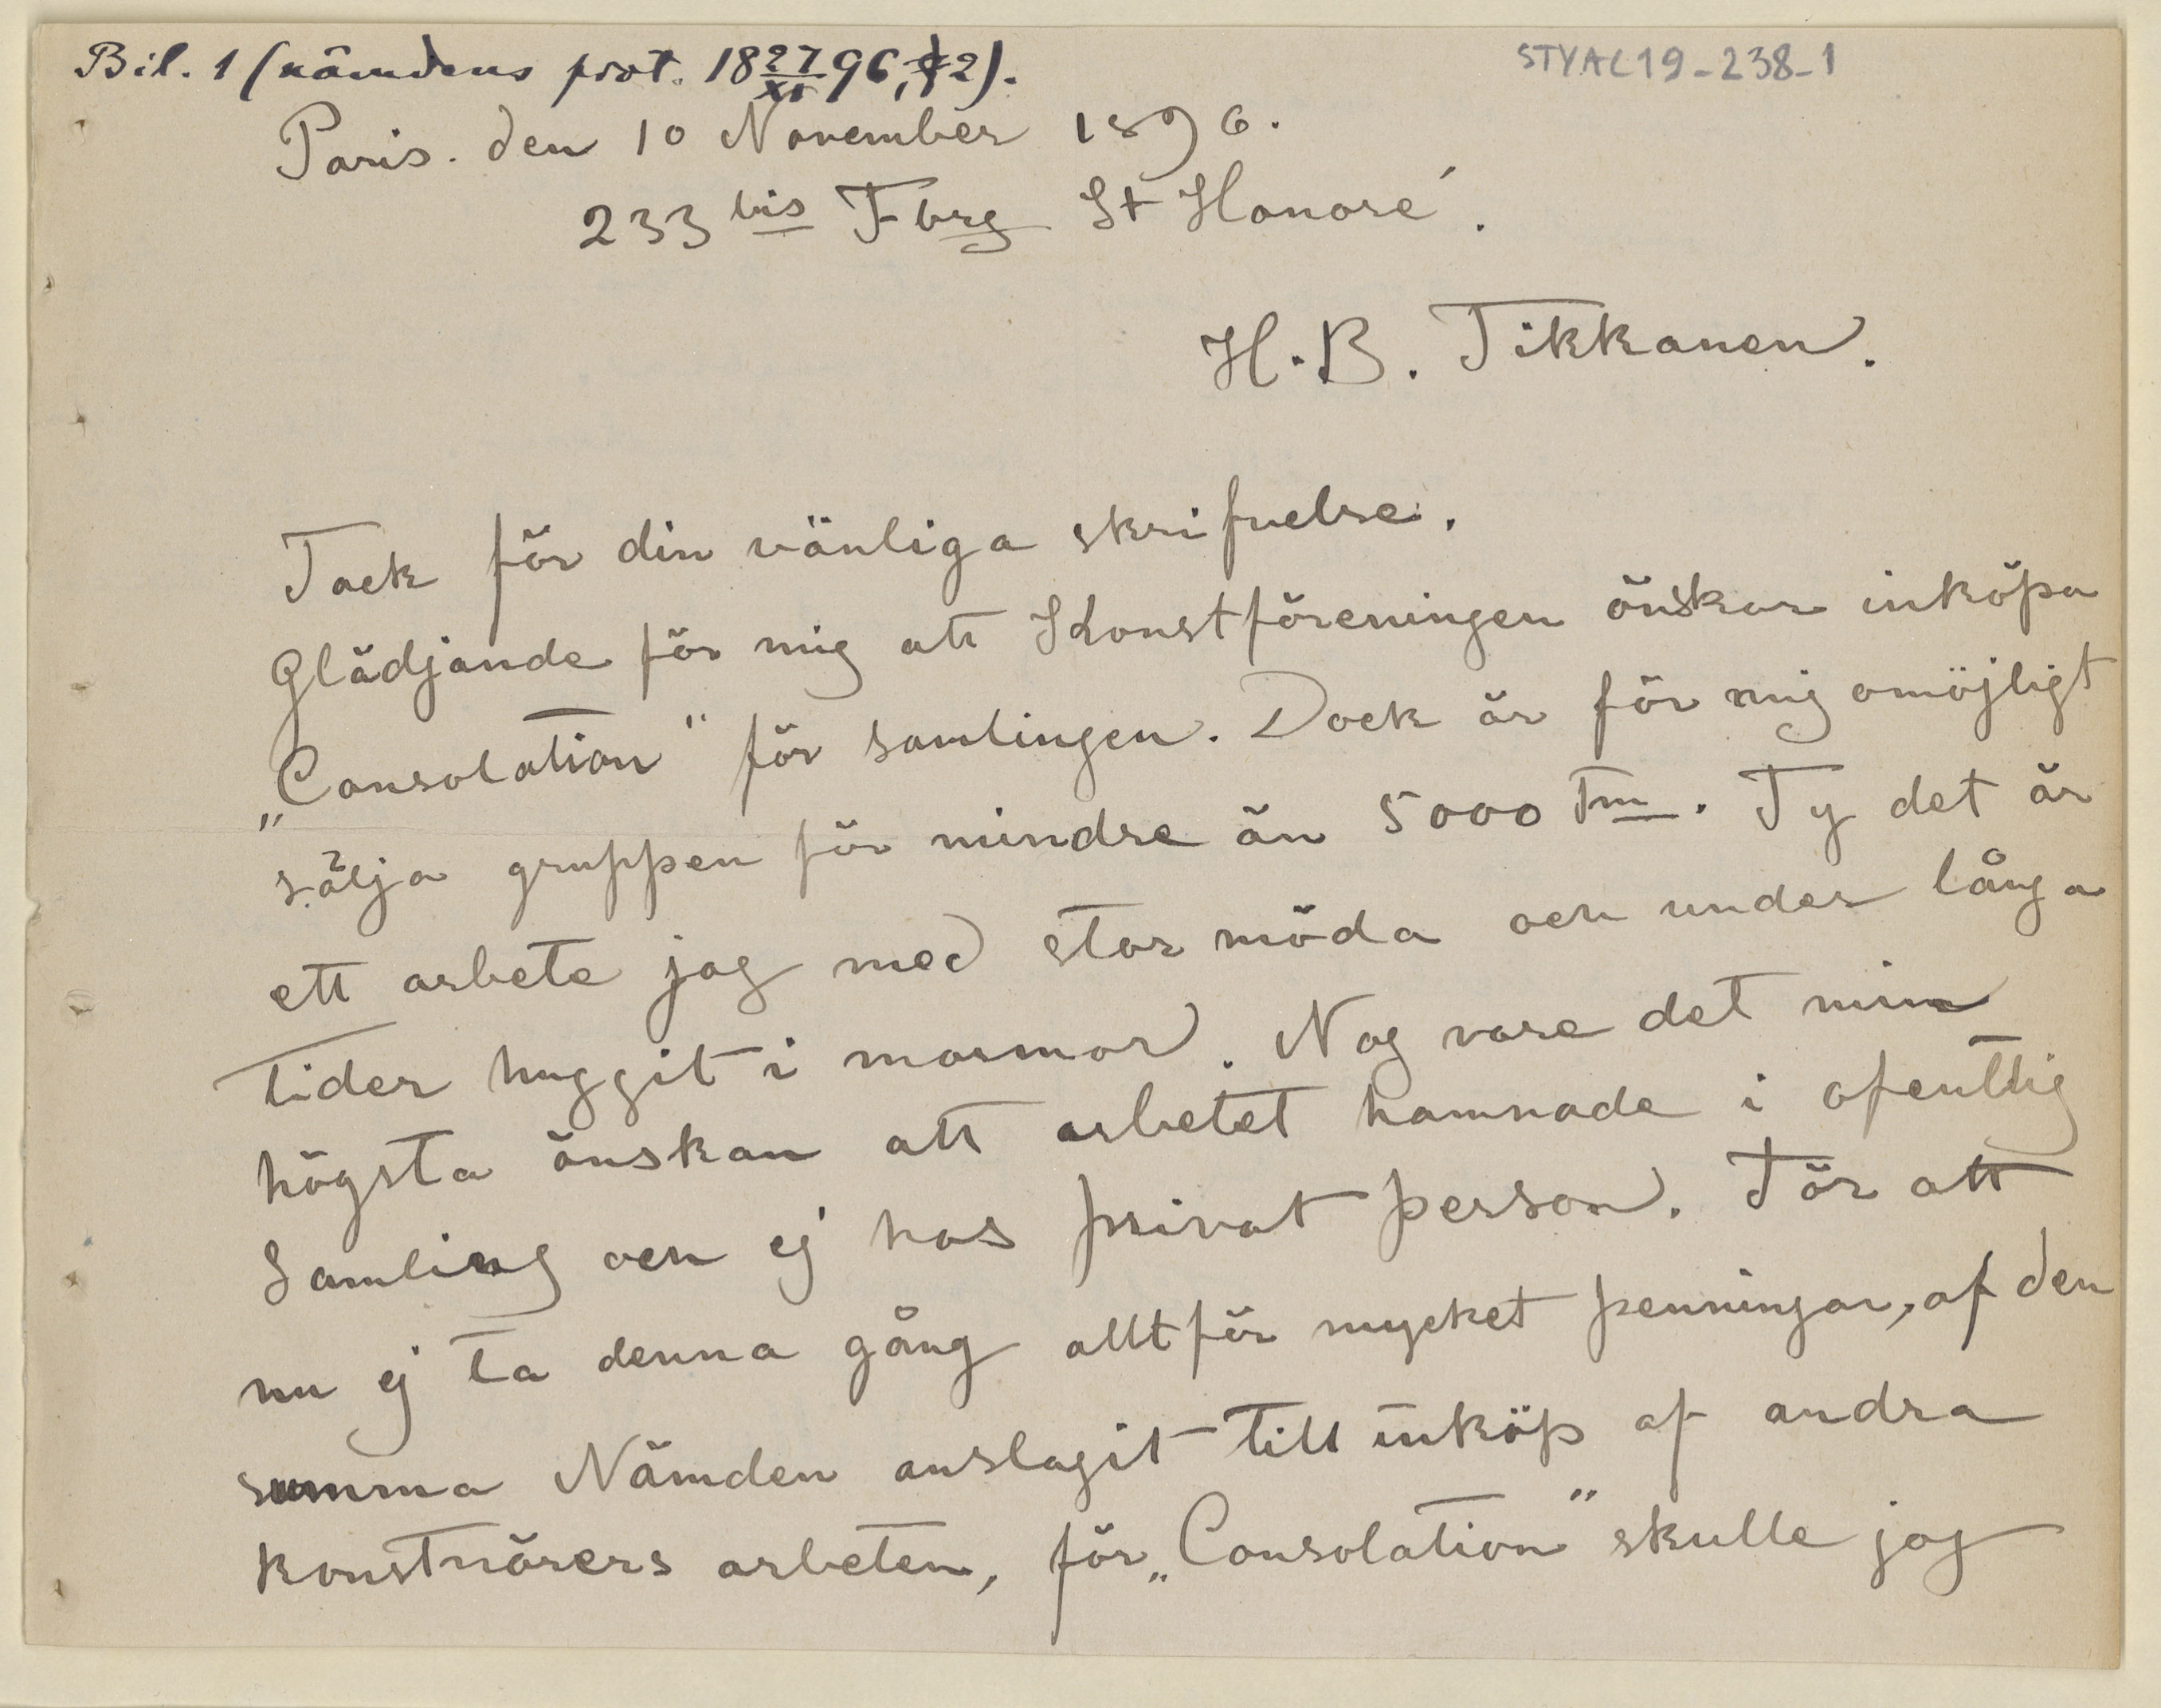 Bil. 1 (nämdens prot. 18 27/XI 96, § 2).
STYAC19-238-1
Paris. den 10 November 1896.
233 bis Fbrg St Honoré.
H. B. Tikkanen.
Tack för din vänliga skrifvelse.
Glädjande för mig att Konstföreningen önskar inköpa
„Consolation" för samlingen. Dock är för mig omöjligt
sälja gruppen för mindre än 5000 Fm. Ty det är
ett arbete jag med stor möda och under långa
tider huggit i marmor. Nog vore det min
högsta önskan att arbetet hamnade i ofentlig
Samling och ej hos privat person. För att
nu ej ta denna gång alltför mycket penningar, af den
summa Nämden anslagit till inköp af andra
konstnärers arbeten, för „Consolation" skulle jag